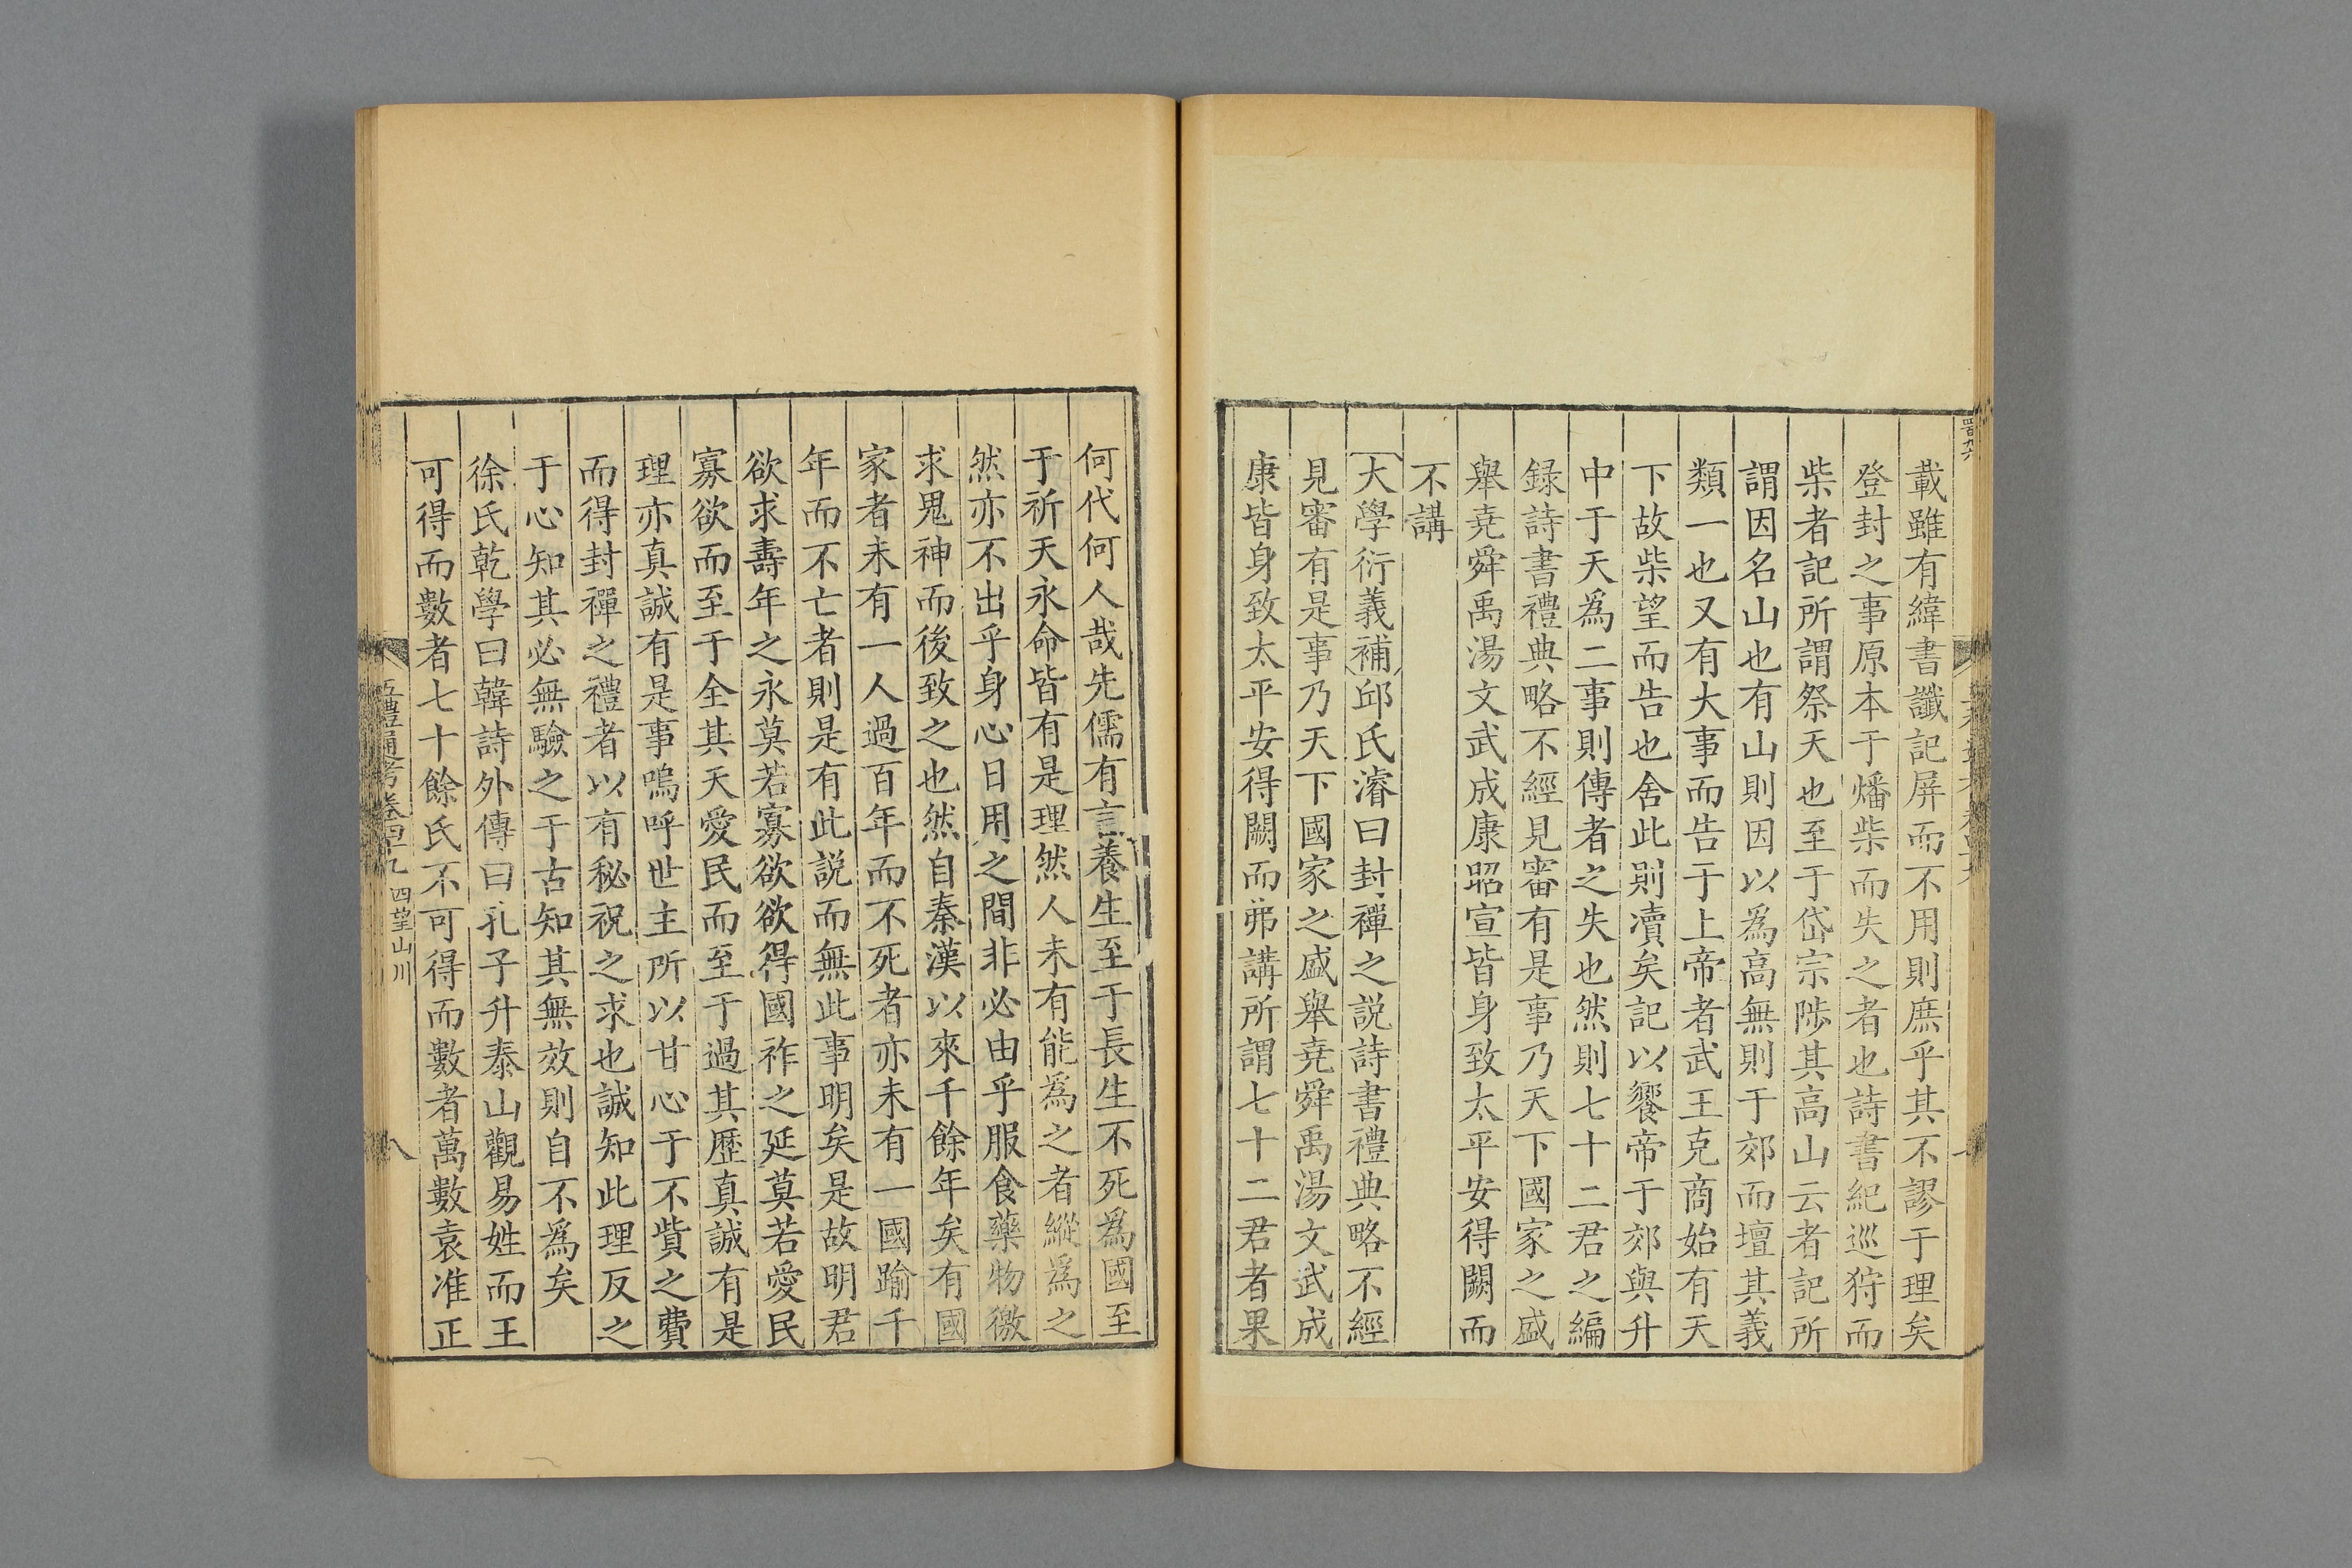 載雖有緯書讖記屏而不用則庶乎其不謬于理矣
登封之事原本于燔柴而失之者也詩書紀巡狩而
柴者記所謂祭天也至于岱宗陟其高山云者記所
謂因名山也有山則因以爲高無則于郊而壇其義
類一也又有大事而告于上帝者武王克商始有天
下故柴望而告也舍此則瀆矣記以饗帝于郊與升
中于天爲二事則傳者之失也然則七十二君之編
録詩書禮典略不經見審有是事乃天下國家之盛
舉堯舜禹湯文武成康昭宣皆身致太平安得闕而
不講
大學衍義補邱氏濬曰封禪之説詩書禮典略不經
見審有是事乃天下國家之盛舉堯舜禹湯文武成
康皆身致太平安得闕而弗講所謂七十二君者果
何代何人哉先儒有言養生至于長生不死爲國至
于祈天永命皆有是理然人未有能爲之者縱爲之
然亦不出乎身心日用之間非必由乎服食藥物徼
求鬼神而後致之也然自秦漢以來千餘年矣有國
家者未有一人過百年而不死者亦未有一國踰千
年而不亡者則是有此説而無此事明矣是故明君
欲求壽年之永莫若寡欲欲得國祚之延莫若愛民
寡欲而至于全其天愛民而至于過其歷真誠有是
理亦真誠有是事嗚呼世主所以甘心于不貲之費
而得封禪之禮者以有秘祝之求也誠知此理反之
于心知其必無驗之于古知其無效則自不爲矣
徐氏乾學曰韓詩外傳曰孔子升泰山觀易姓而王
可得而數者七十餘氏不可得而數者萬數袁准正
五禮通考卷四十九 四望山川
八